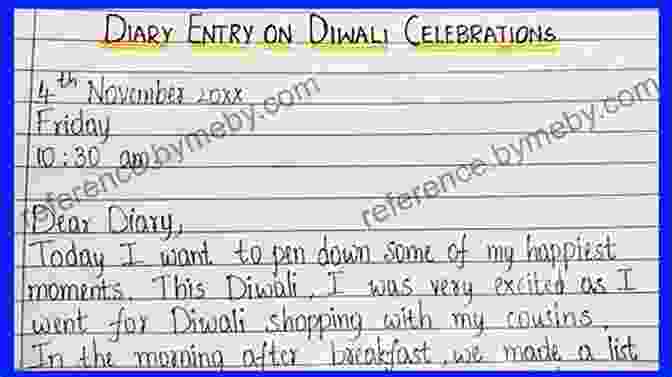 DIARY ENTRY ON DIWALI CELEBRATIONS
4th November 20xx
Friday
10:30 am
Dear Diary,
Today I want to pen down some of my happiest
moments. This Diwali, I was very excited as I
went for Diwali shopping with my cousins.
In the morning after breakfast, we made a list
reference.bymeby.com
reference.bymeby.com